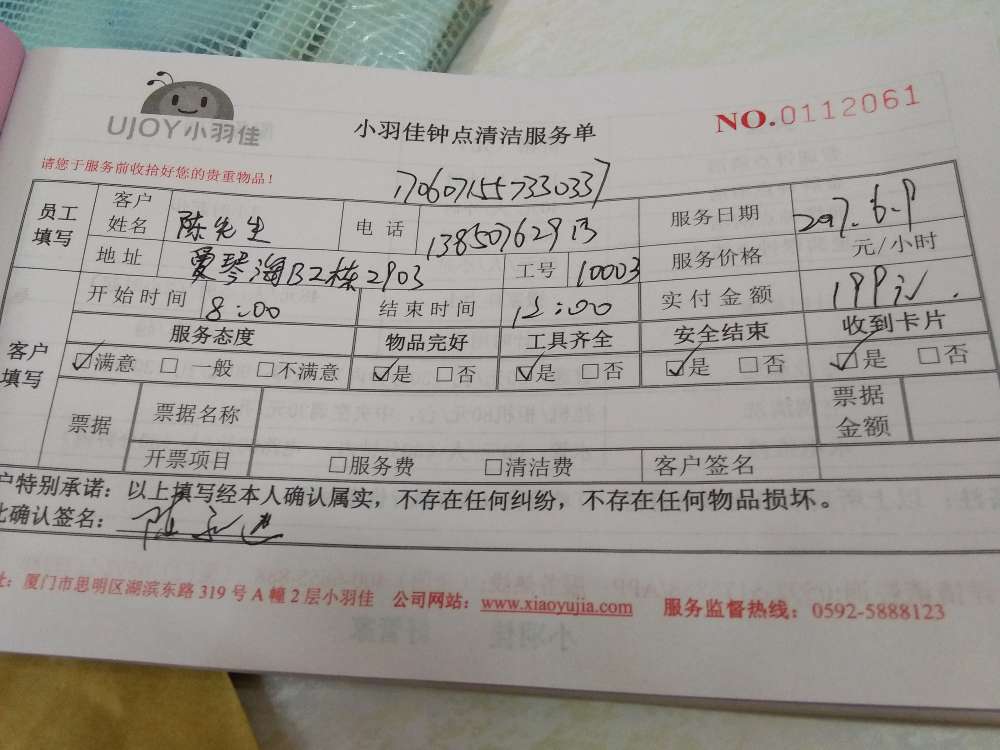 UJOY小羽佳
小羽佳钟点清洁服务单
NO.0112061
请您于服务前收拾好您的贵重物品！
1706071557330337
员工填写 客户姓名 陈先生 电话 13850762913 服务日期 2017.6.9
地址 夏琴海B2栋2903 工号 10003 服务价格 元/小时
开始时间 8:00 结束时间 12:00 实付金额 199元.
客户填写 服务态度 物品完好 工具齐全 安全结束 收到卡片
☑满意 □一般 □不满意 ☑是 □否 ☑是 □否 ☑是 □否 ☑是 □否
票据 票据名称 票据金额
开票项目 □服务费 □清洁费 客户签名
户特别承诺：以上填写经本人确认属实，不存在任何纠纷，不存在任何物品损坏。
此确认签名：
址：厦门市思明区湖滨东路 319 号 A 幢 2 层小羽佳 公司网站：www.xiaoyujia.com 服务监督热线：0592-5888123